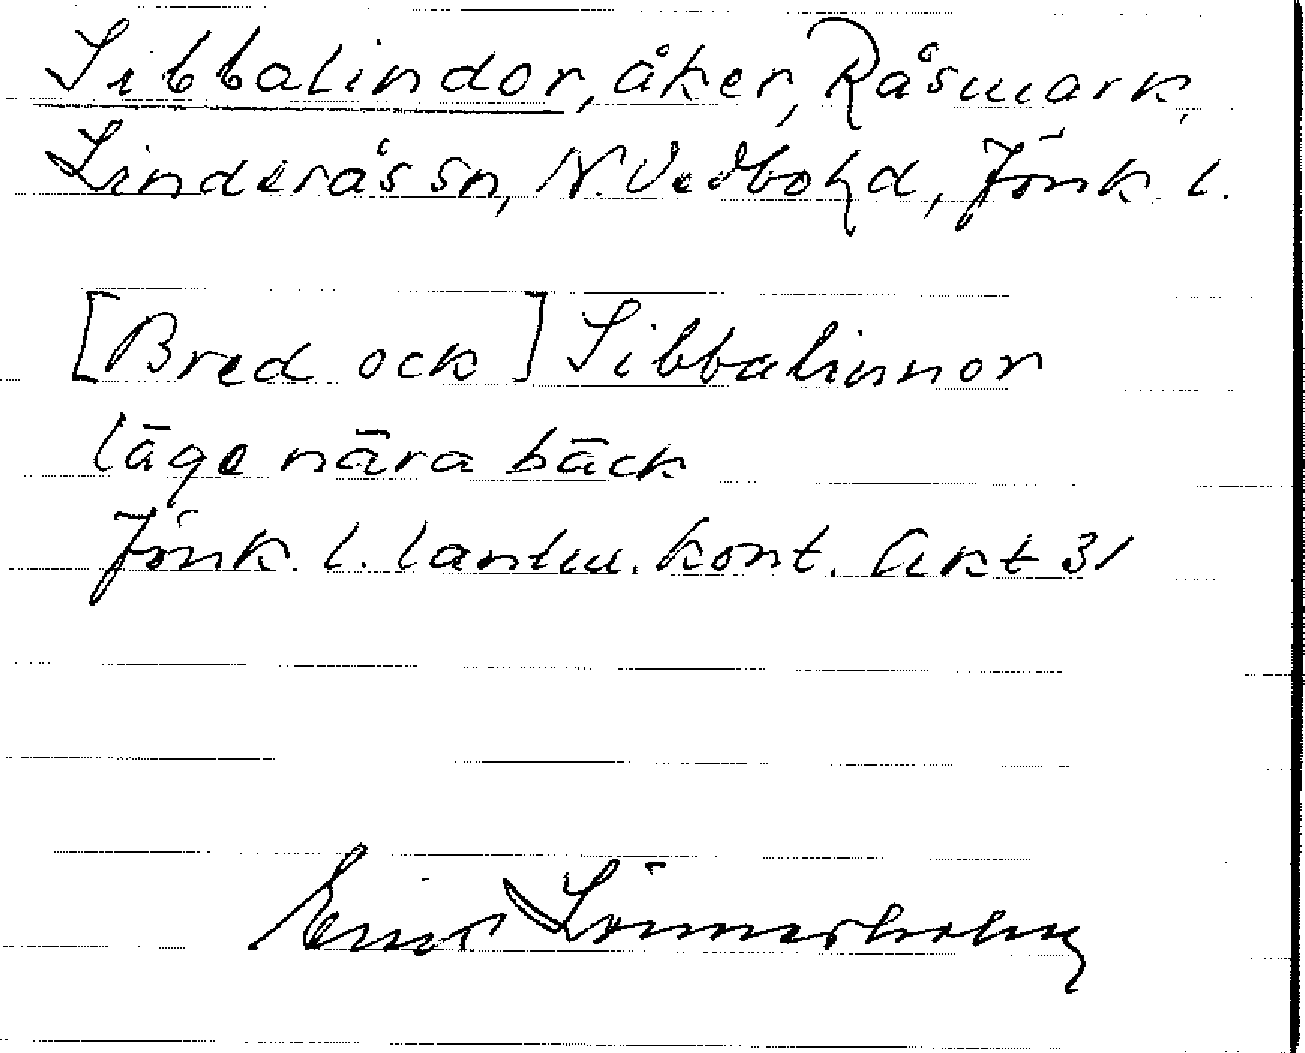 Sibbalindor, åker, Råsmark,
Linderås sn, N. Vedbo hd, Jönk. l.
[Bred ock] Sibbalinnor
läge nära bäck
Jönk. l. lantm. kont. Akt 31
Einar Lönnerholm